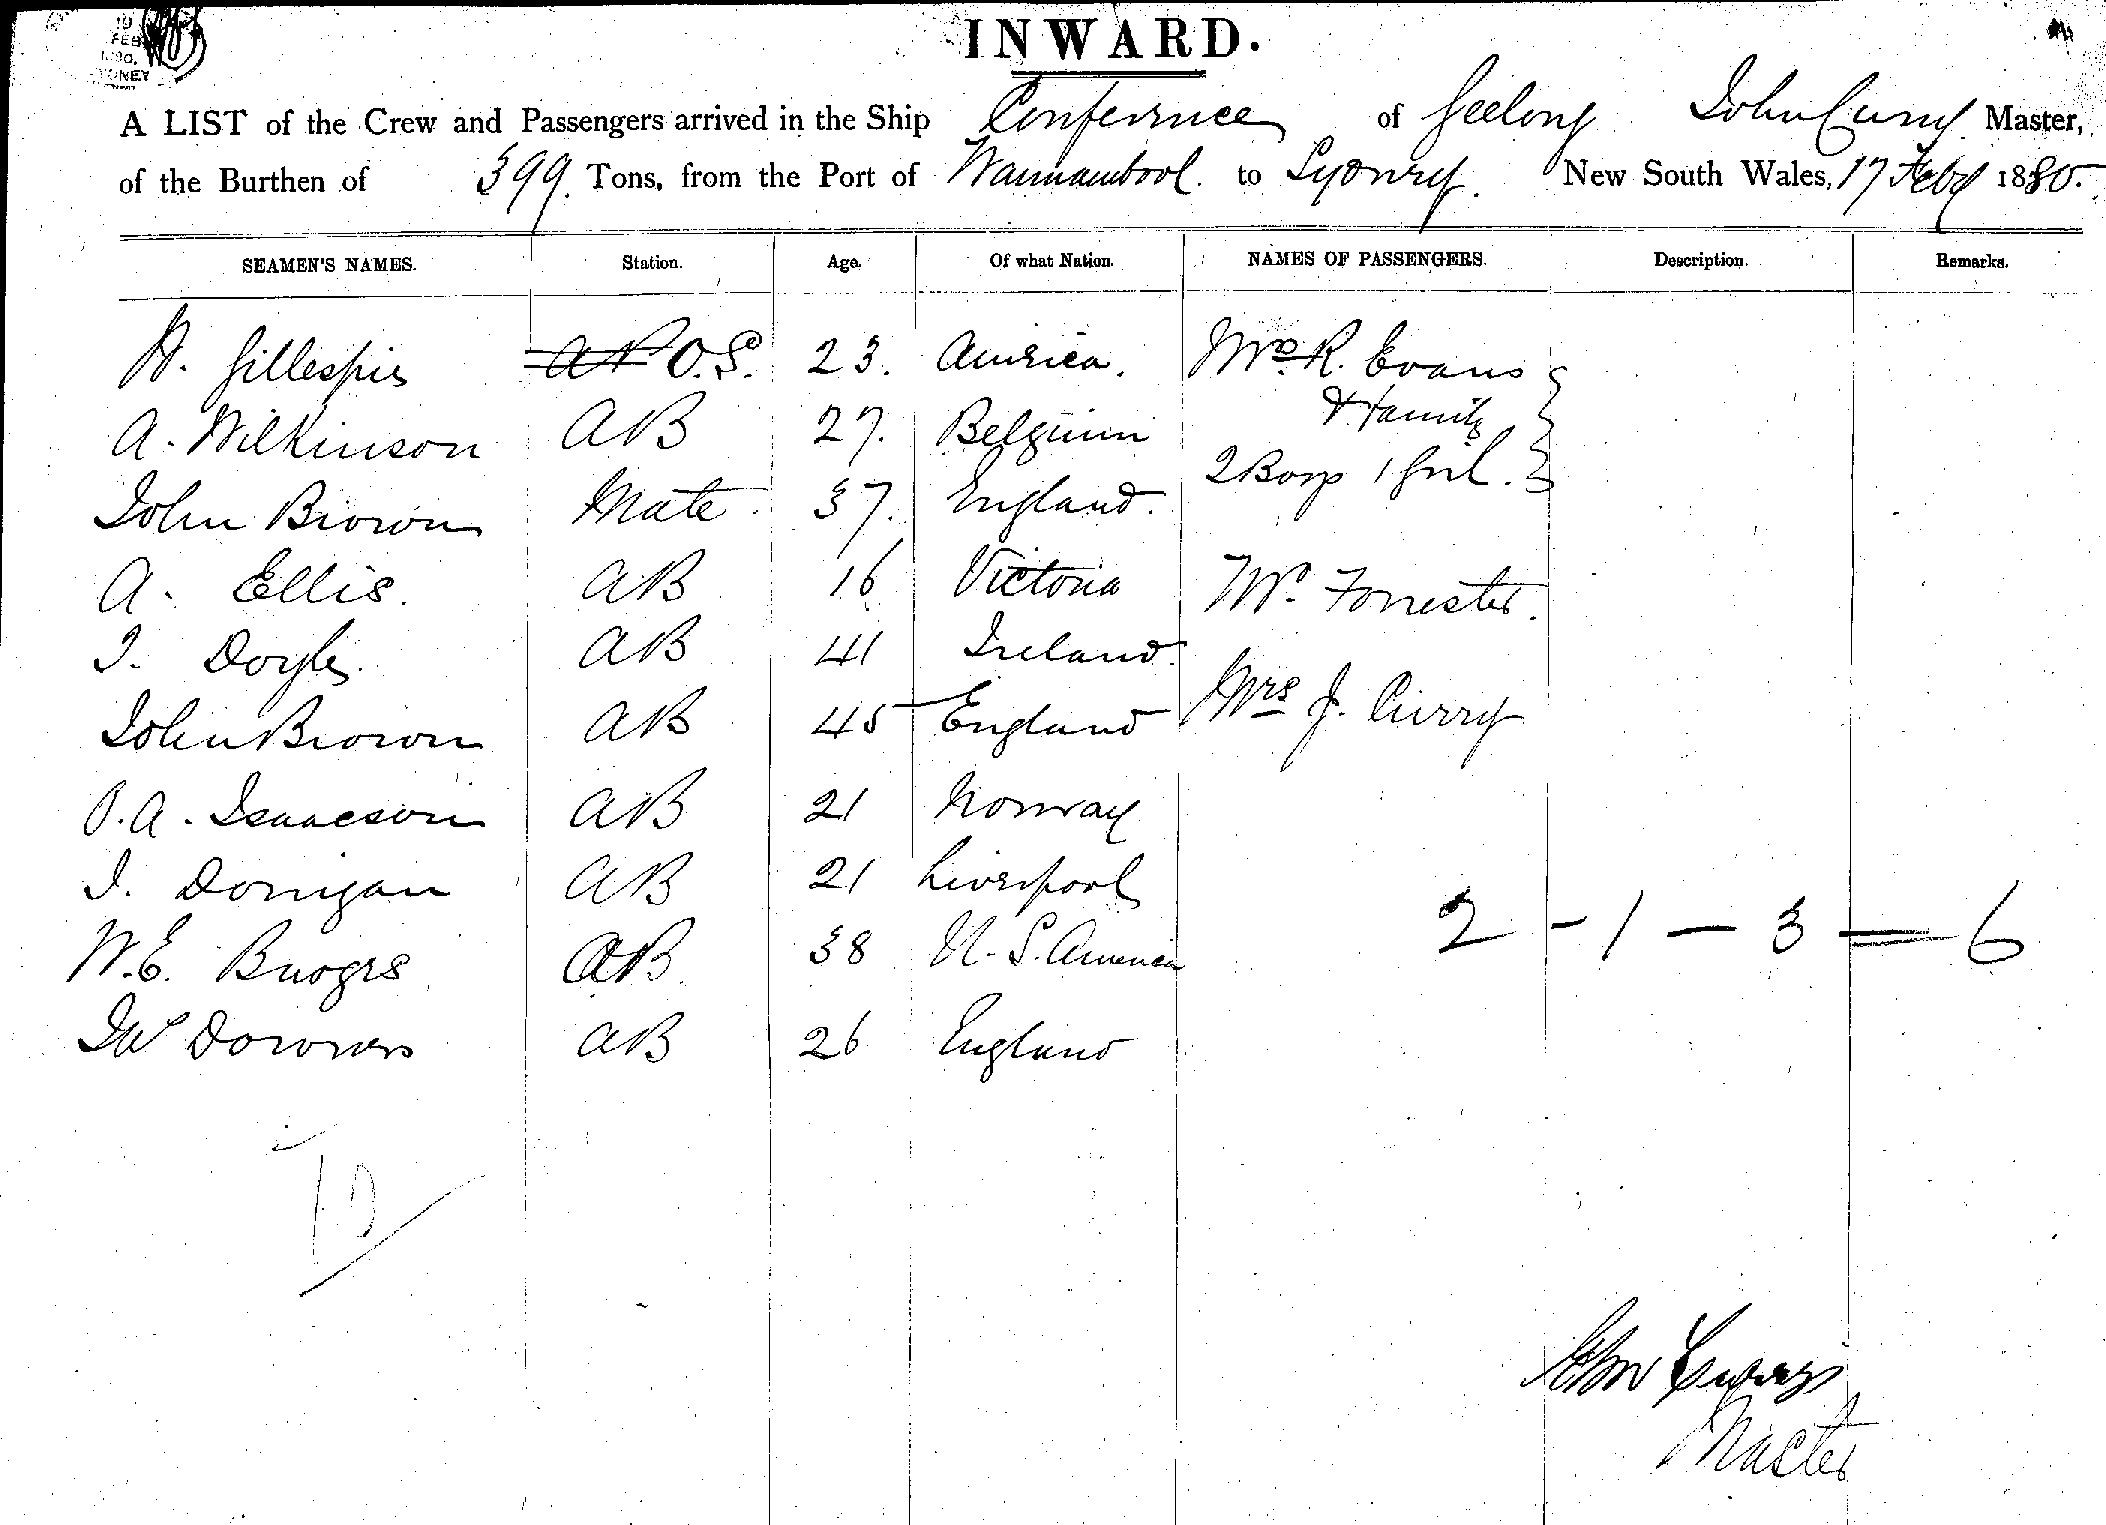 19
FEB
1880
SYDNEY
INWARD.
A LIST of the Crew and Passengers arrived in the Ship Conference of Geelong John Curry Master,
of the Burthen of 399 Tons, from the Port of Warrnambool. to Sydney. New South Wales, 17 Feby 1880.
SEAMEN'S NAMES. Station. Age. Of what Nation. NAMES OF PASSENGERS. Description. Remarks.
Gillespie AB O.S. 23. America. R. Evans
& Family
A. Wilkinson AB 27. Belguim 2 Boys 1 Girl.
John Brown Mate 37. England.
A. Ellis. AB 16 Victoria Forrester.
J. Doyle. AB 41 Ireland.
John Brown AB 45 England Mrs J. Curry
P.A. Isaacson AB 21 Norway
J. Dorrigan AB 21 Liverpool
2 - 1 - 3 = 6
W.E. AB 38 U. S. America
JW Downes AB 26 England
10
John Curry
Master